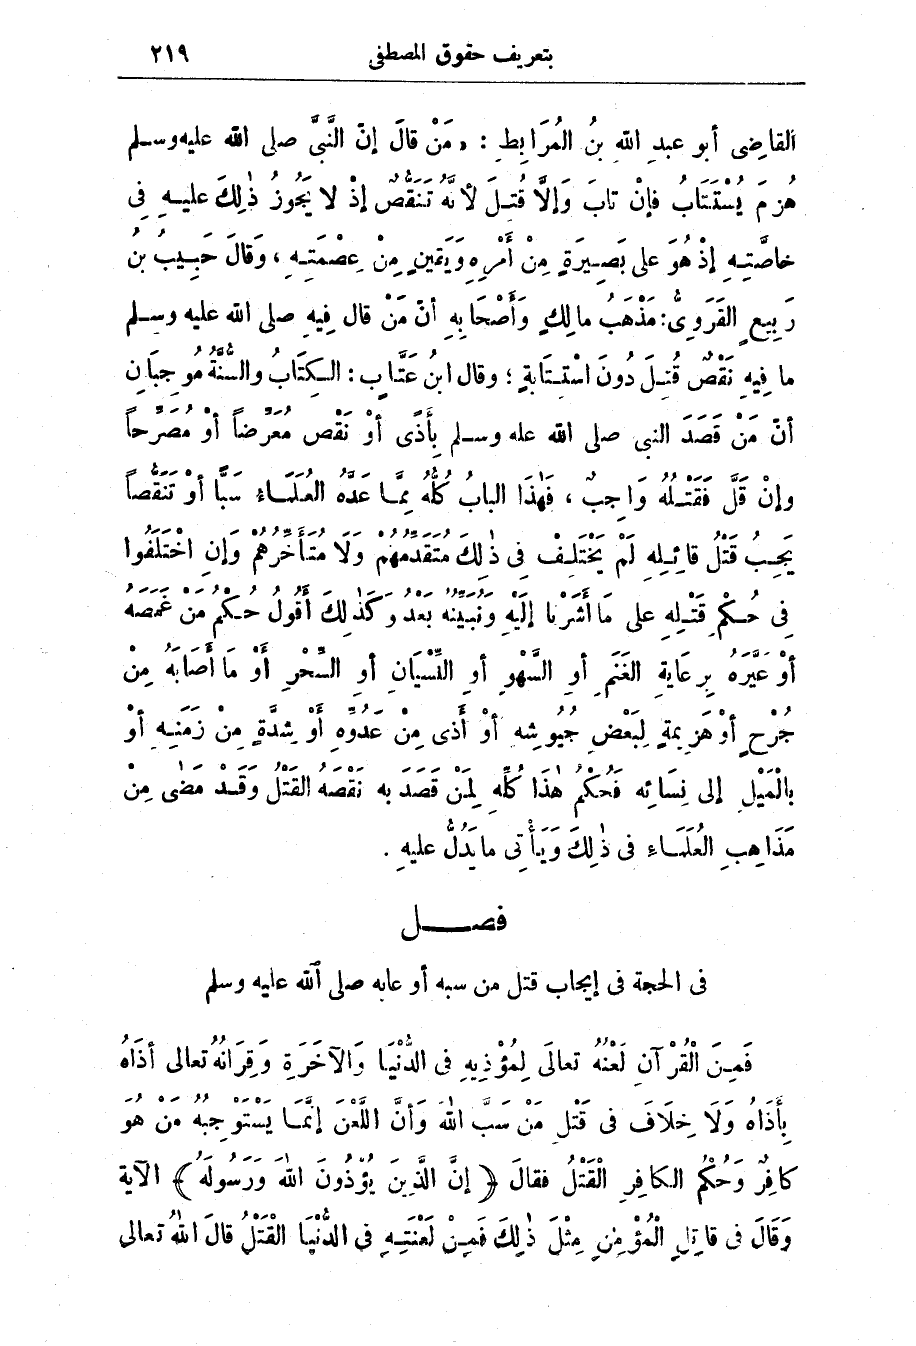 بتعريف حقوق المصطفى ٢١٩
القاضِى أبو عبدِ اللهِ بنُ المُرَابِطِ : « مَنْ قالَ إنّ النَّبىَّ صلى الله عليه وسلم
هُزِمَ يُسْتَتَابُ فإنْ تابَ وَإلَّا قُتِلَ لأنهُ تَنَقُّصٌ إذْ لا يَجُوزُ ذٰلِكَ عليهِ فِى
خاصَّتِهِ إذْ هُوَ على بَصِيرَةٍ مِنْ أَمْرِهِ وَيَقينٍ مِنْ عِصْمَتِهِ ، وَقالَ حَبِيبُ بن
رَبِيعٍ القَرَوِىُّ: مَذْهَبُ مالِكٍ وَأَصْحَابِهِ أنّ مَنْ قال فِيهِ صلى الله عليه وسلم
ما فِيهِ نَقْصٌ قُتِلَ دُونَ اسْتِتَابَةٍ ؛ وقال ابنُ عَتَّابٍ : الكِتَابُ والسُّنَّةُ مُوجِبَانِ
أنّ مَنْ قَصَدَ النبى صلى الله عله وسلم بِأَذًى أوْ نَقْصٍ مُعَرِّضاً أوْ مُصَرِّحاً
وإنْ قَلَّ فَقَتْلُهُ وَاجِبٌ ، فَهٰذَا البابُ كُلُّهُ مِمَّا عَدَّهُ العُلَمَاءُ سَبًّا أوْ تَنَقُّصاً
يَجِبُ قَتْلُ قائِلِهِ لَمْ يَخْتَلِفْ فِى ذٰلِكَ مُتَقَدِّمُهُمْ وَلَا مُتَأَخِّرُهُمْ وَإنِ اخْتَلَفُوا
فِى حُكْمِ قَتْلِهِ على مَا أَشَرْنَا إلَيْهِ وَنُبَيِّنُهُ بَعْدُ وَكَذٰلِكَ أَقُولُ حُكْمُ مَنْ غَمَصَهُ
أوْ عَيَّرَهُ بِرِعَايةِ الغَنَمِ أو السَّهْوِ أو النِّسْيَانِ أو السِّحْرِ أَوْ مَا أَصَابَهُ مِنْ
جُرْحٍ أوْ هَزِيمَةٍ لِبَعْضِ جُيُوشِهِ أوْ أَذى مِنْ عَدُوِّهِ أَوْ شِدَّةٍ مِنْ زَمَنِهِ أوْ
بالْمَيْلِ إلى نِسَائِهِ فَحُكْمُ هٰذَا كُلِّهِ لِمَنْ قَصَدَ بِهِ نَقْصَهُ القَتْلُ وَقَدْ مَضٰى مِنْ
مَذَاهِبِ العُلَمَاءِ فى ذٰلِكَ وَيَأْتِى ما يَدُلُّ عليهِ .
فصـــل
فى الحجة فى إيجاب قتل من سبه أو عابه صلى الله عليه وسلم
فَمِنَ الْقُرْآنِ لَعْنُهُ تعالَى لِمُؤْذِيهِ فى الدُّنْيَا وَالآخَرَةِ وَقِرَانُهُ تعالى أذَاهُ
بِأَذَاهُ وَلَا خِلَافَ فى قَتْلِ مَنْ سَبَّ اللهَ وَأنَّ اللَّعْنَ إنَّمَا يَسْتَوْجِبُهُ مَنْ هُوَ
كافِرٌ وَحُكْمُ الكافِرِ الْقَتْلُ فقالَ ﴿ إنَّ الَّذِينَ يُؤْذُونَ اللهَ وَرَسُولَهُ ﴾ الآيةَ
وَقَالَ فى قاتِلِ الْمُؤْمِنِ مِثْلَ ذٰلِكَ فَمِنْ لَعْنَتِهِ فى الدُّنْيَا القَتْلُ قالَ اللهُ تعالى